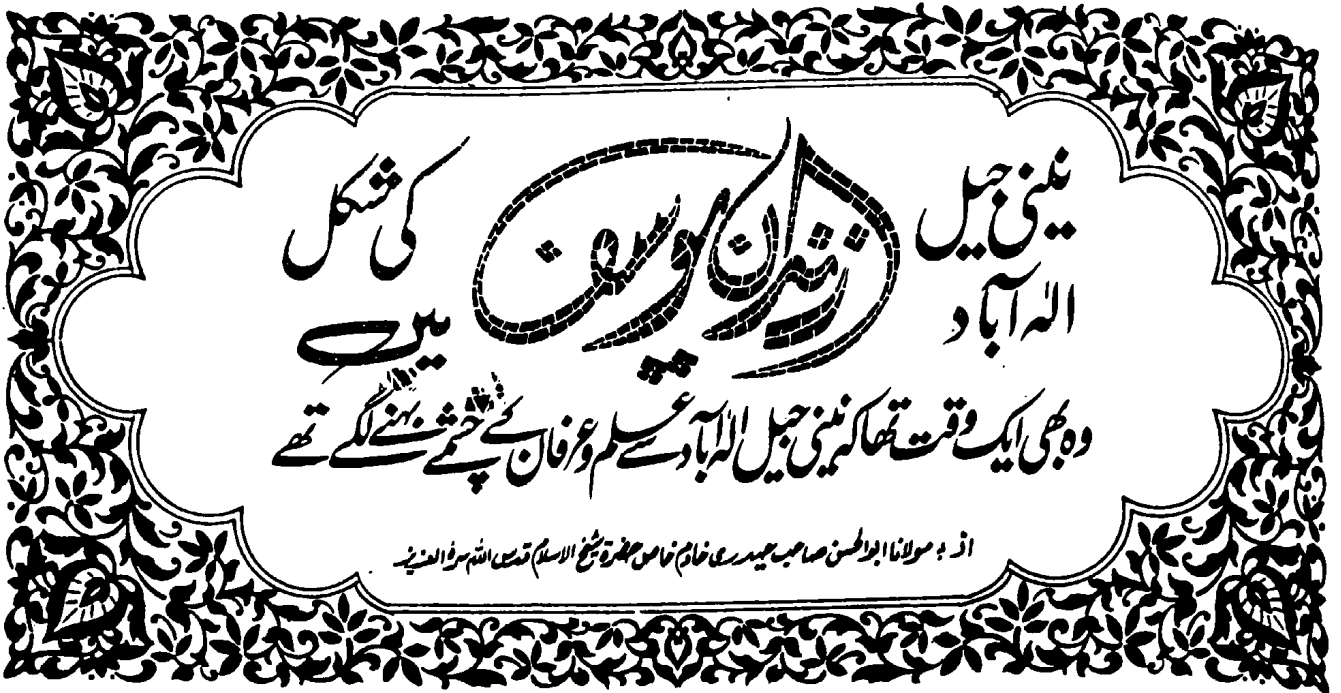 نینی جیل الہ آباد
زندان یوسف
کی شکل میں
وہ بھی ایک وقت تھا کہ نینی جیل الہ آباد سے علم و عرفان کے چشمے بہنے لگے تھے
از: مولانا ابوالحسن صاحب حیدری خادم خاص حضرۃ شیخ الاسلام قدس اللہ سرہ العزیز